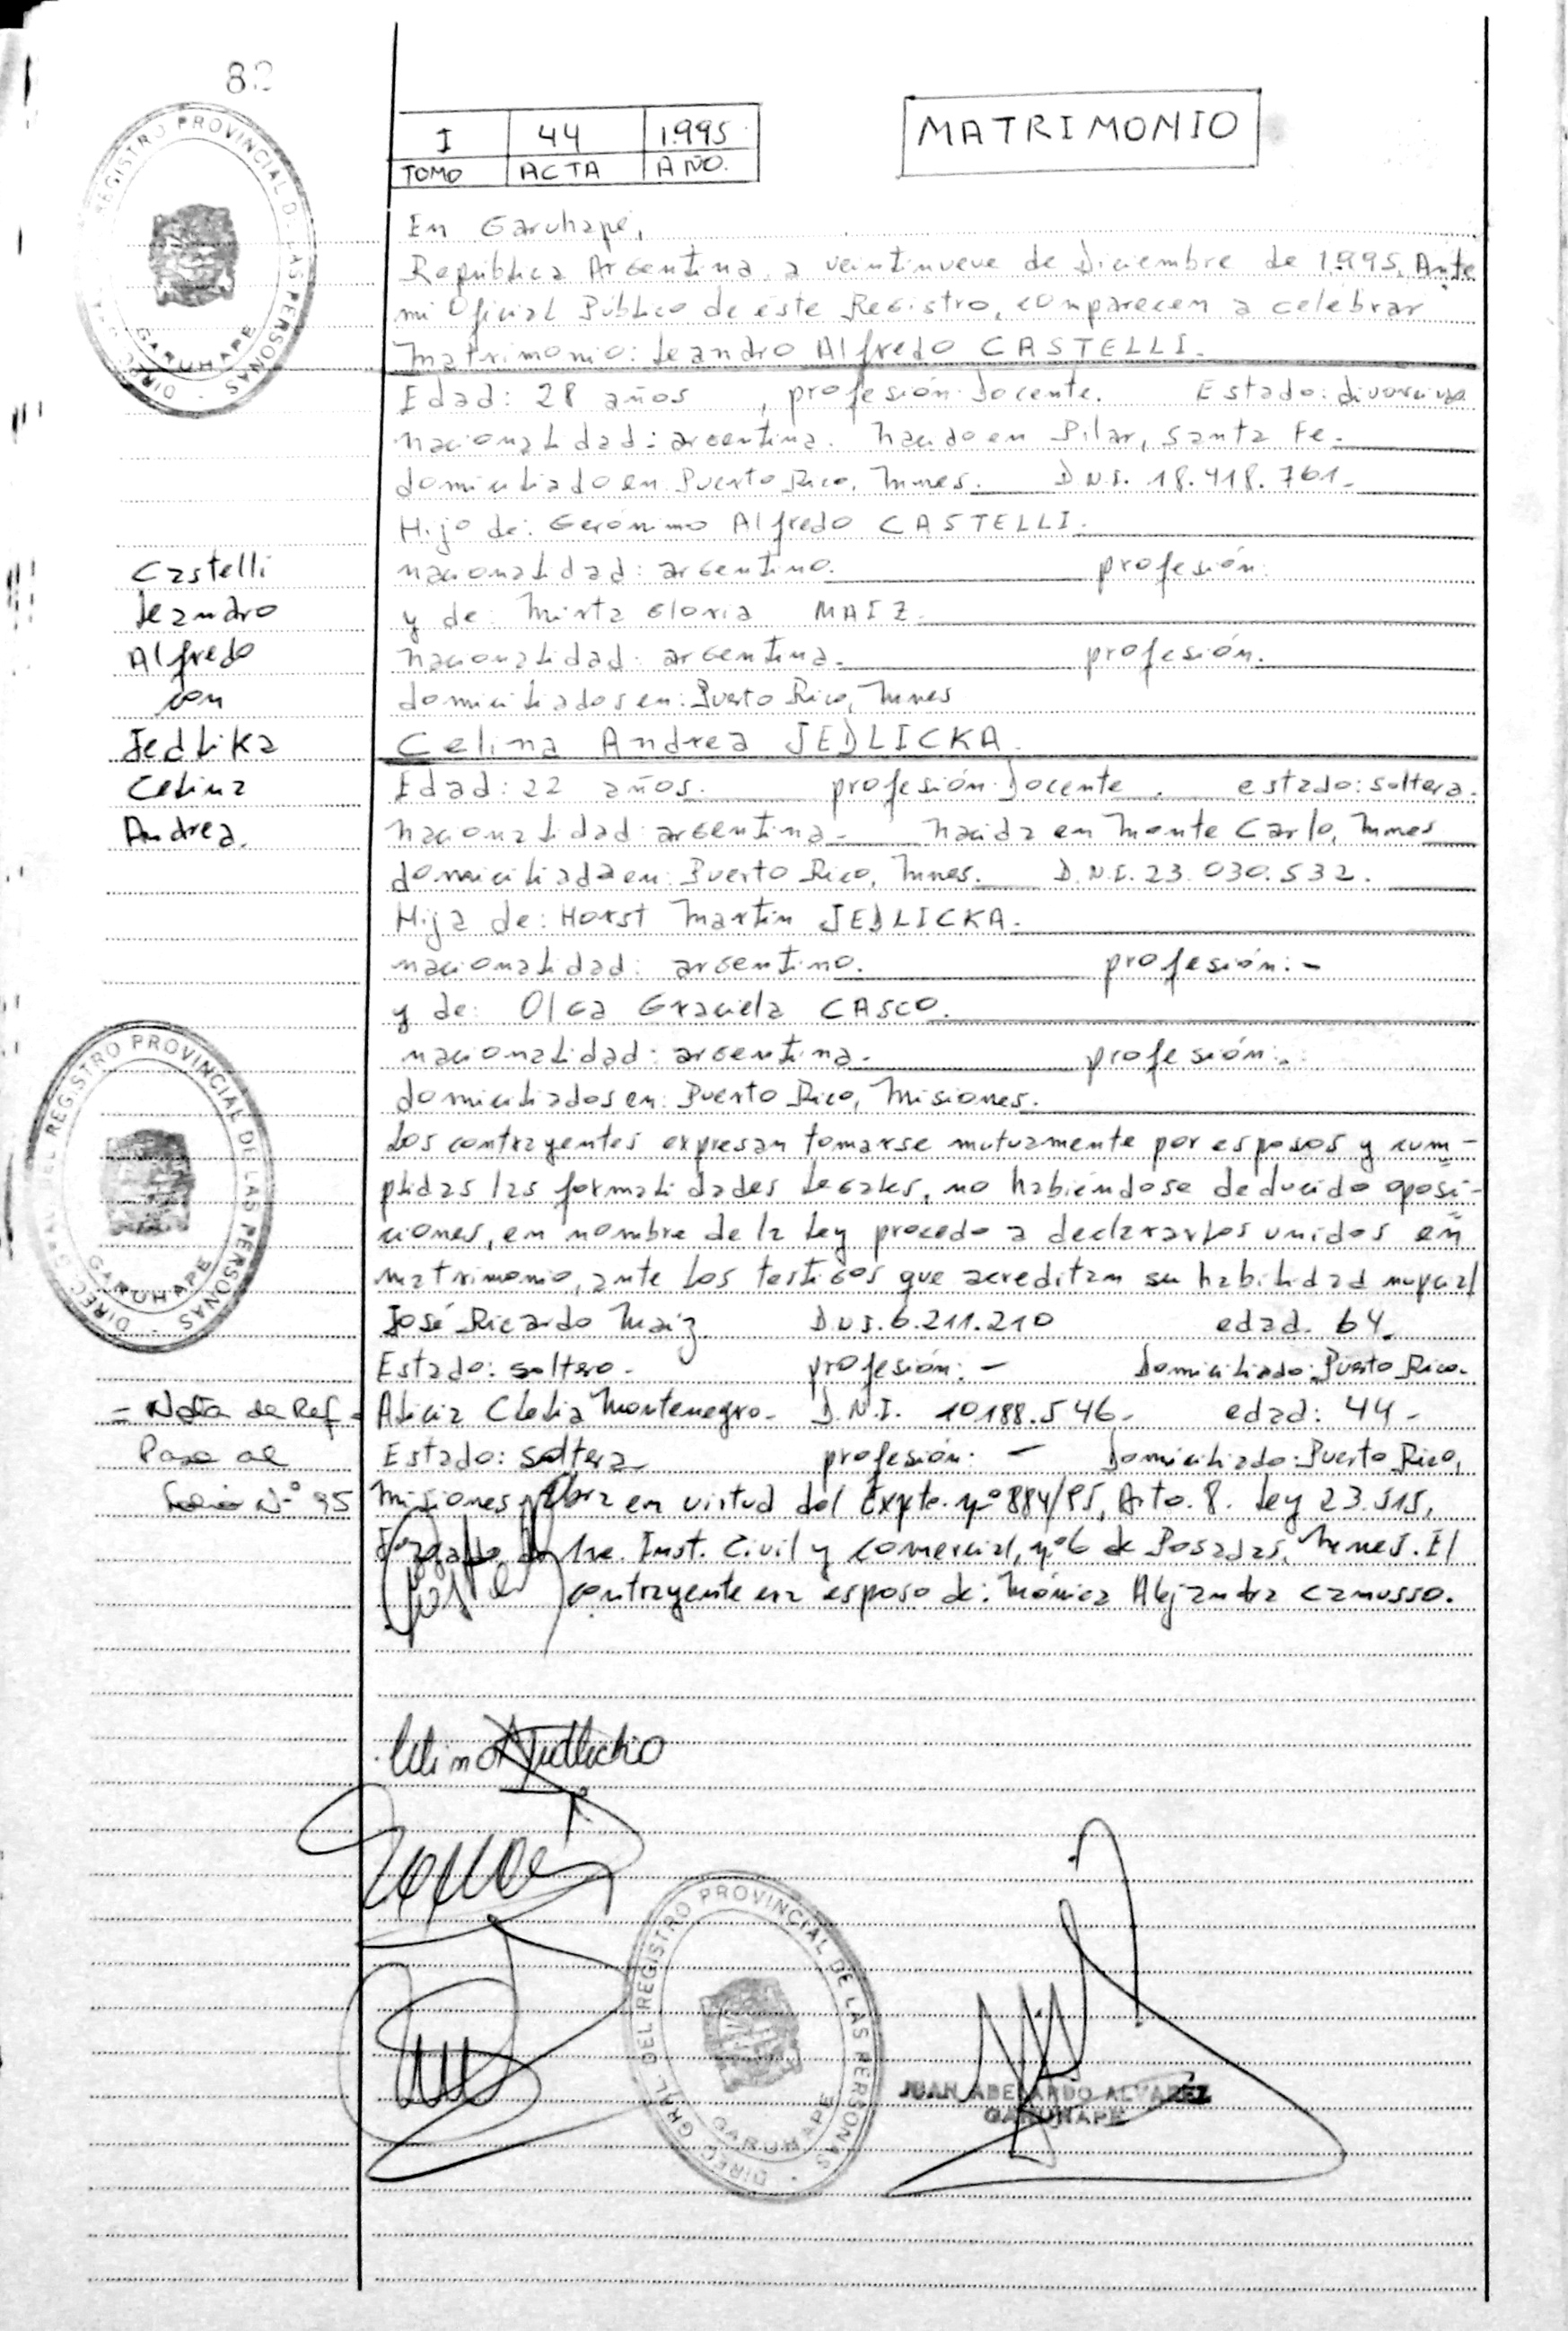 82
I 44 1.995
TOMO ACTA AÑO.
MATRIMONIO
DIREC. GRAL DEL REGISTRO PROVINCIAL DE LAS PERSONAS
GARUHAPE
En Garuhapé,
República Argentina, a veintinueve de Diciembre de 1.995. Ante
mi Oficial Público de este Registro, comparecen a celebrar
matrimonio: Leandro Alfredo CASTELLI.
Edad: 28 años, profesión: Docente. Estado: divorciado
nacionalidad: argentina. nacido en Pilar, Santa Fe.
domiciliado en: Puerto Rico, Mnes. D.N.I. 18.418.761.
Hijo de: Gerónimo Alfredo CASTELLI.
nacionalidad: argentino. profesión:
y de: Mirta Gloria MAIZ.
nacionalidad: argentina. profesión.
domiciliados en: Puerto Rico, Mnes
Castelli
Leandro
Alfredo
con
Jedlika
Celina
Andrea.
Celina Andrea JEDLICKA.
Edad: 22 años. profesión: Docente. estado: soltera.
nacionalidad: argentina. nacida en Monte Carlo, Mnes
domiciliada en: Puerto Rico, Mnes. D.N.I. 23.030.532.
Hija de: Horst Martin JEDLICKA.
nacionalidad: argentino. profesión: -
y de: Olga Graciela CASCO.
nacionalidad: argentina. profesión: .
domiciliados en: Puerto Rico, Misiones.
DIREC. GRAL DEL REGISTRO PROVINCIAL DE LAS PERSONAS
GARUHAPE
Los contrayentes expresan tomarse mutuamente por esposos y cum-
plidas las formalidades legales, no habiéndose deducido oposi-
ciones, en nombre de la Ley procedo a declararlos unidos en
matrimonio, ante los testigos que acreditan su habilidad nupcial
José Ricardo Maiz D.N.I. 6.211.210 edad. 64.
Estado: soltero. profesión: - Domiciliado: Puerto Rico.
Alicia Clelia Montenegro. D.N.I. 10.188.546. edad: 44.
Estado: soltera profesión: - Domiciliado: Puerto Rico,
Misiones. Obra en virtud del Expte. nº 884/95, Arto. 8. Ley 23.515,
Juzgado de 1ra. Inst. Civil y Comercial, nº 6 de Posadas, Mnes. El
contrayente era esposo de: Mónica Alejandra Camusso.
- Nota de Ref -
Pasa al
Folio N° 95
Celina A Jedlicka
DIREC. GRAL DEL REGISTRO PROVINCIAL DE LAS PERSONAS
GARUHAPE
JUAN ABELARDO ALVAREZ
GARUHAPE